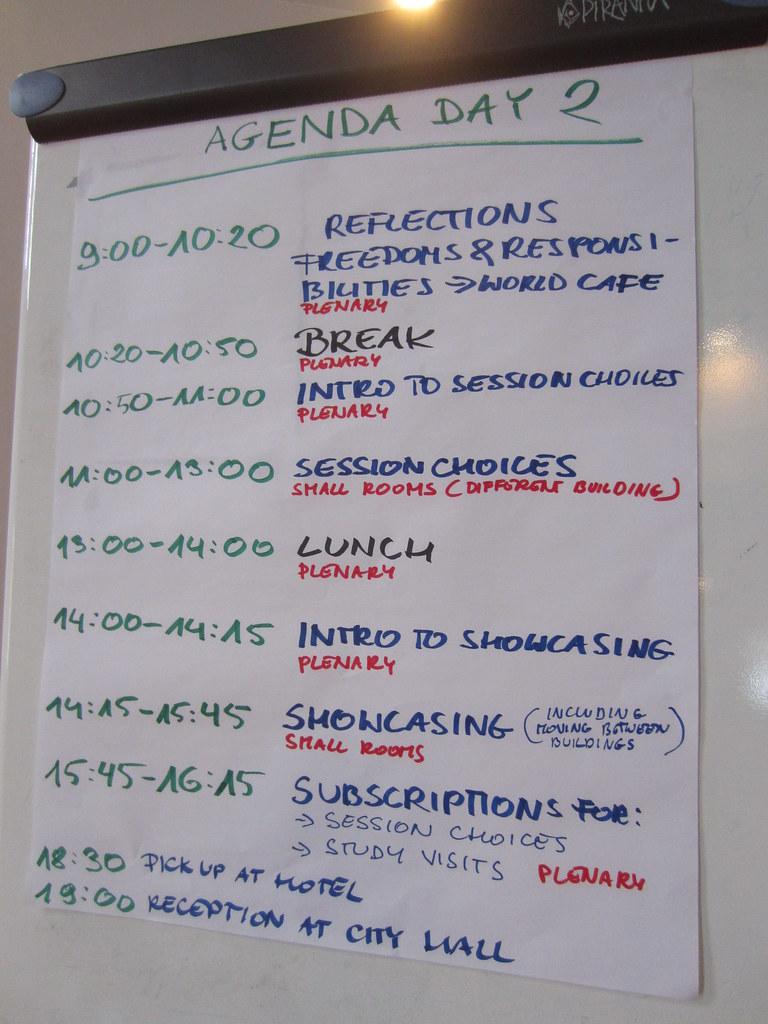 PIRANHA
AGENDA DAY 2
9:00-10:20 REFLECTIONS
FREEDOMS & RESPONSI-
BILITIES → WORLD CAFE
PLENARY
10:20-10:50 BREAK
PLENARY
10:50-11:00 INTRO TO SESSION CHOICES
PLENARY
11:00-13:00 SESSION CHOICES
SMALL ROOMS (DIFFERENT BUILDING)
13:00-14:00 LUNCH
PLENARY
14:00-14:15 INTRO TO SHOWCASING
PLENARY
14:15-15:45 SHOWCASING (INCLUDING
MOVING BETWEEN
BUILDINGS)
SMALL ROOMS
15:45-16:15 SUBSCRIPTIONS FOR:
→ SESSION CHOICES
→ STUDY VISITS PLENARY
18:30 PICK UP AT HOTEL
19:00 RECEPTION AT CITY HALL